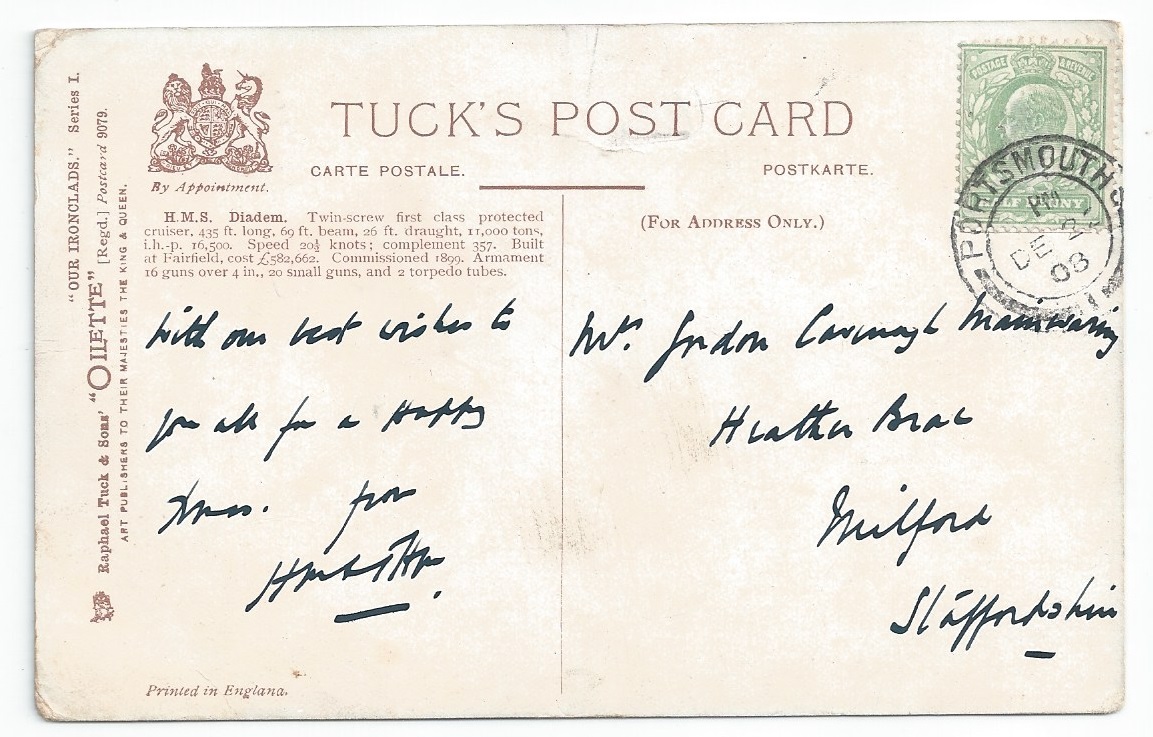 "OUR IRONCLADS." Series I.
Raphael Tuck & Sons' "OILETTE" [Regd.] Postcard 9079.
ART PUBLISHERS TO THEIR MAJESTIES THE KING & QUEEN.
By Appointment.
TUCK'S POST CARD
CARTE POSTALE.
POSTKARTE.
H.M.S. Diadem. Twin-screw first class protected
cruiser, 435 ft. long, 69 ft. beam, 26 ft. draught, 11,000 tons,
i.h.-p. 16,500. Speed 20½ knots; complement 357. Built
at Fairfield, cost £582,662. Commissioned 1899. Armament
16 guns over 4 in., 20 small guns, and 2 torpedo tubes.
With our best wishes to
you all for a Happy
Xmas. from
Printed in England.
(FOR ADDRESS ONLY.)
POSTAGE & REVENUE
HALF PENNY
PORTSMOUTH
PM
DE
08
Mr. Gordon Cavenagh Mainwaring
Heather Brae
Milford
Staffordshire